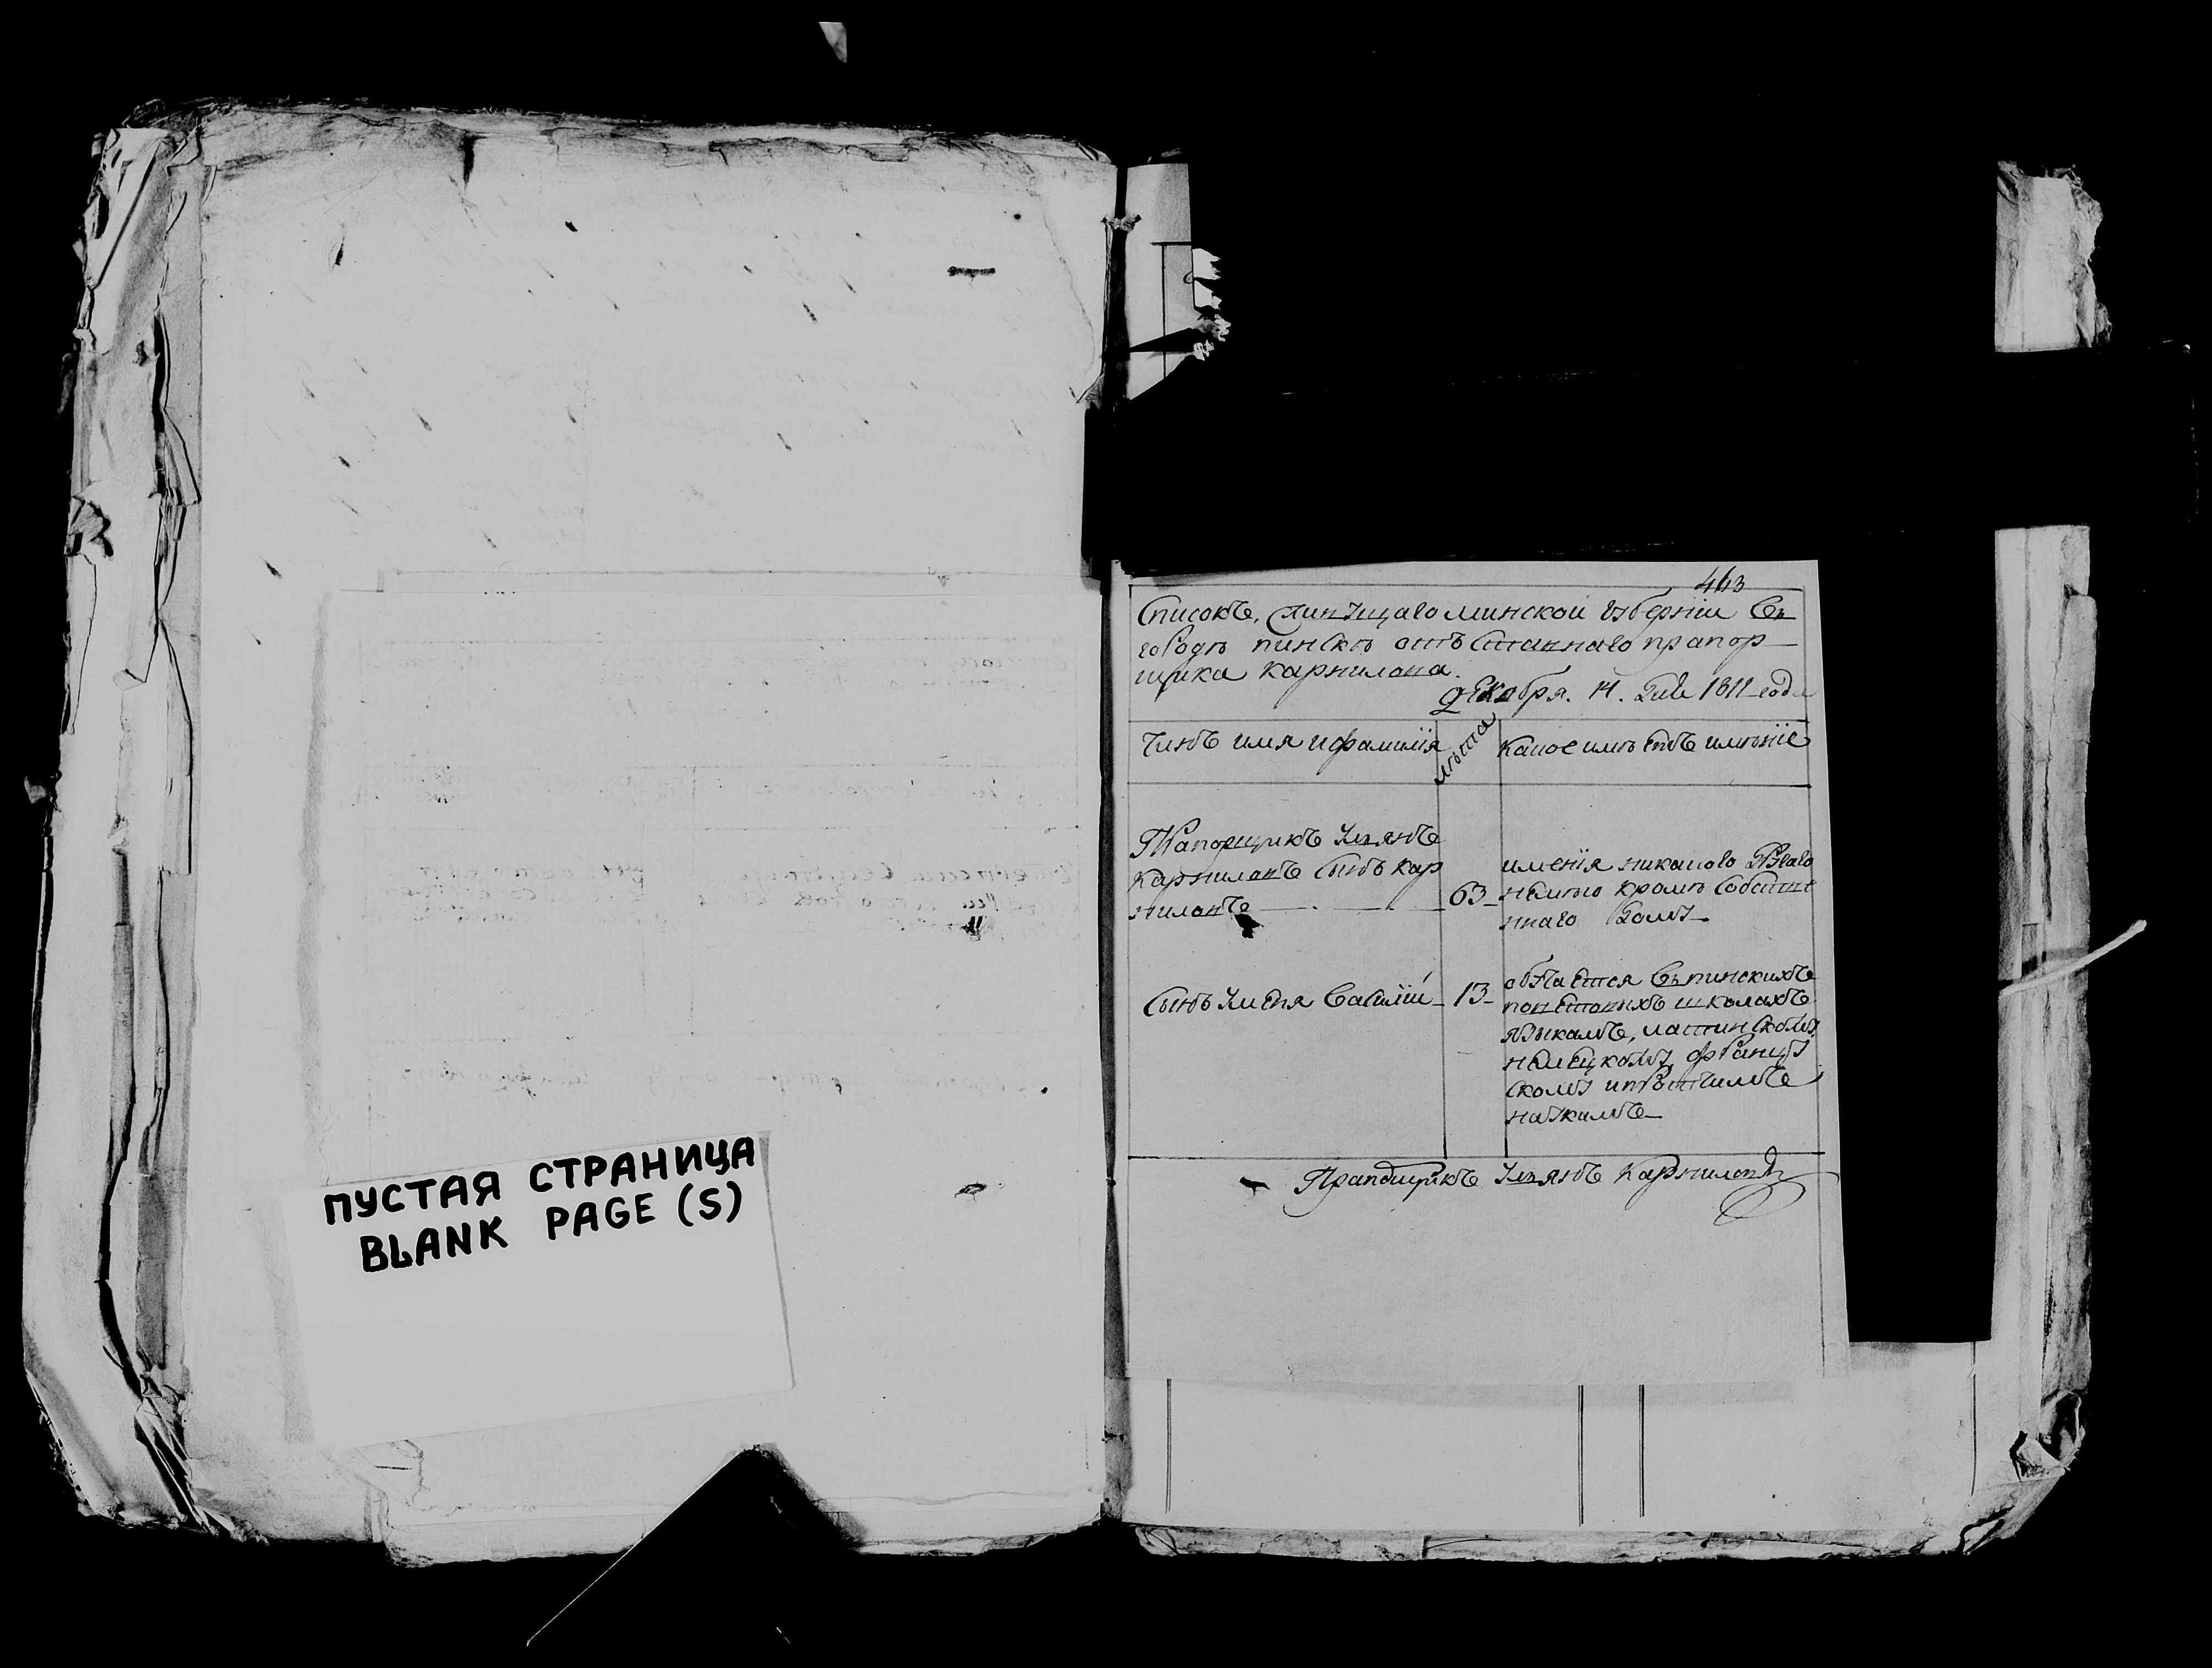 ПУСТАЯ СТРАНИЦА
BLANK PAGE (S)
463
Списокъ, живущаго минской губерніи въ
городѣ пинскѣ отъ ставнаго прапор
щика карнилова.
декабря. 14. дня 1811 года
Чинъ имя и фамилія
лѣта
какое имѣетъ имѣніе
Прапорщикъ
карниловъ сынъ кар
ниловъ
63
именія никакого другаго
неимѣю кромѣ собстве
ннаго дому
Сынъ Уменя Василій
13
обучается въ пинскихъ
поветовыхъ школахъ
языкамъ, латинскому,
немецкому, францу
скому и протчимъ
наукамъ
Прапорщикъ карниловъ